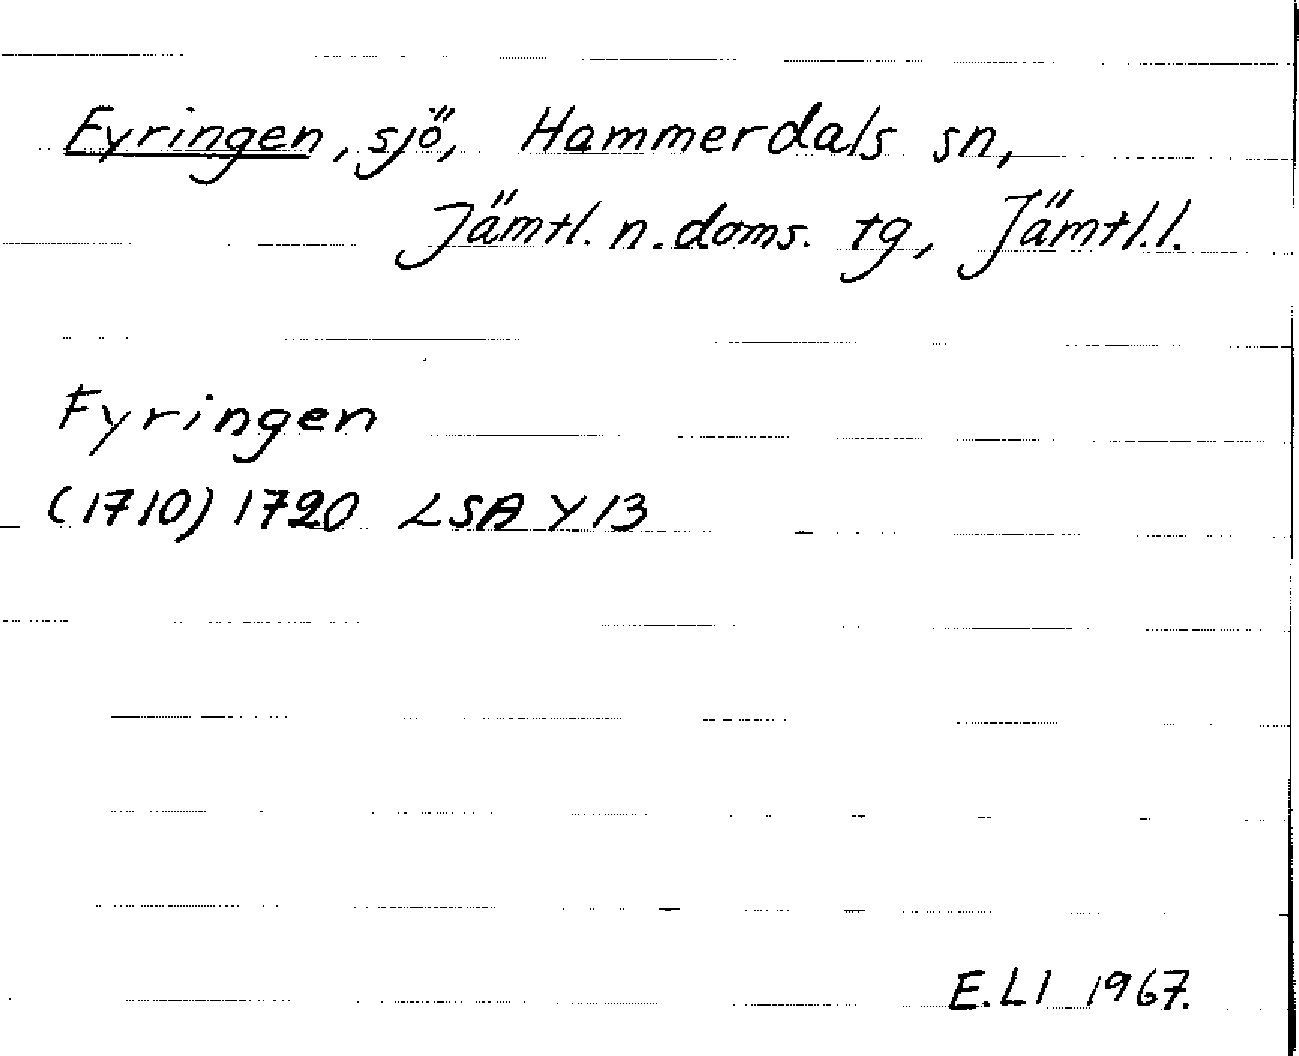 Fyringen, sjö, Hammerdals sn,
Jämtl. n. doms. tg, Jämtl. l.
Fyringen
(1710) 1720 LSA Y 13
E. Ll 1967.